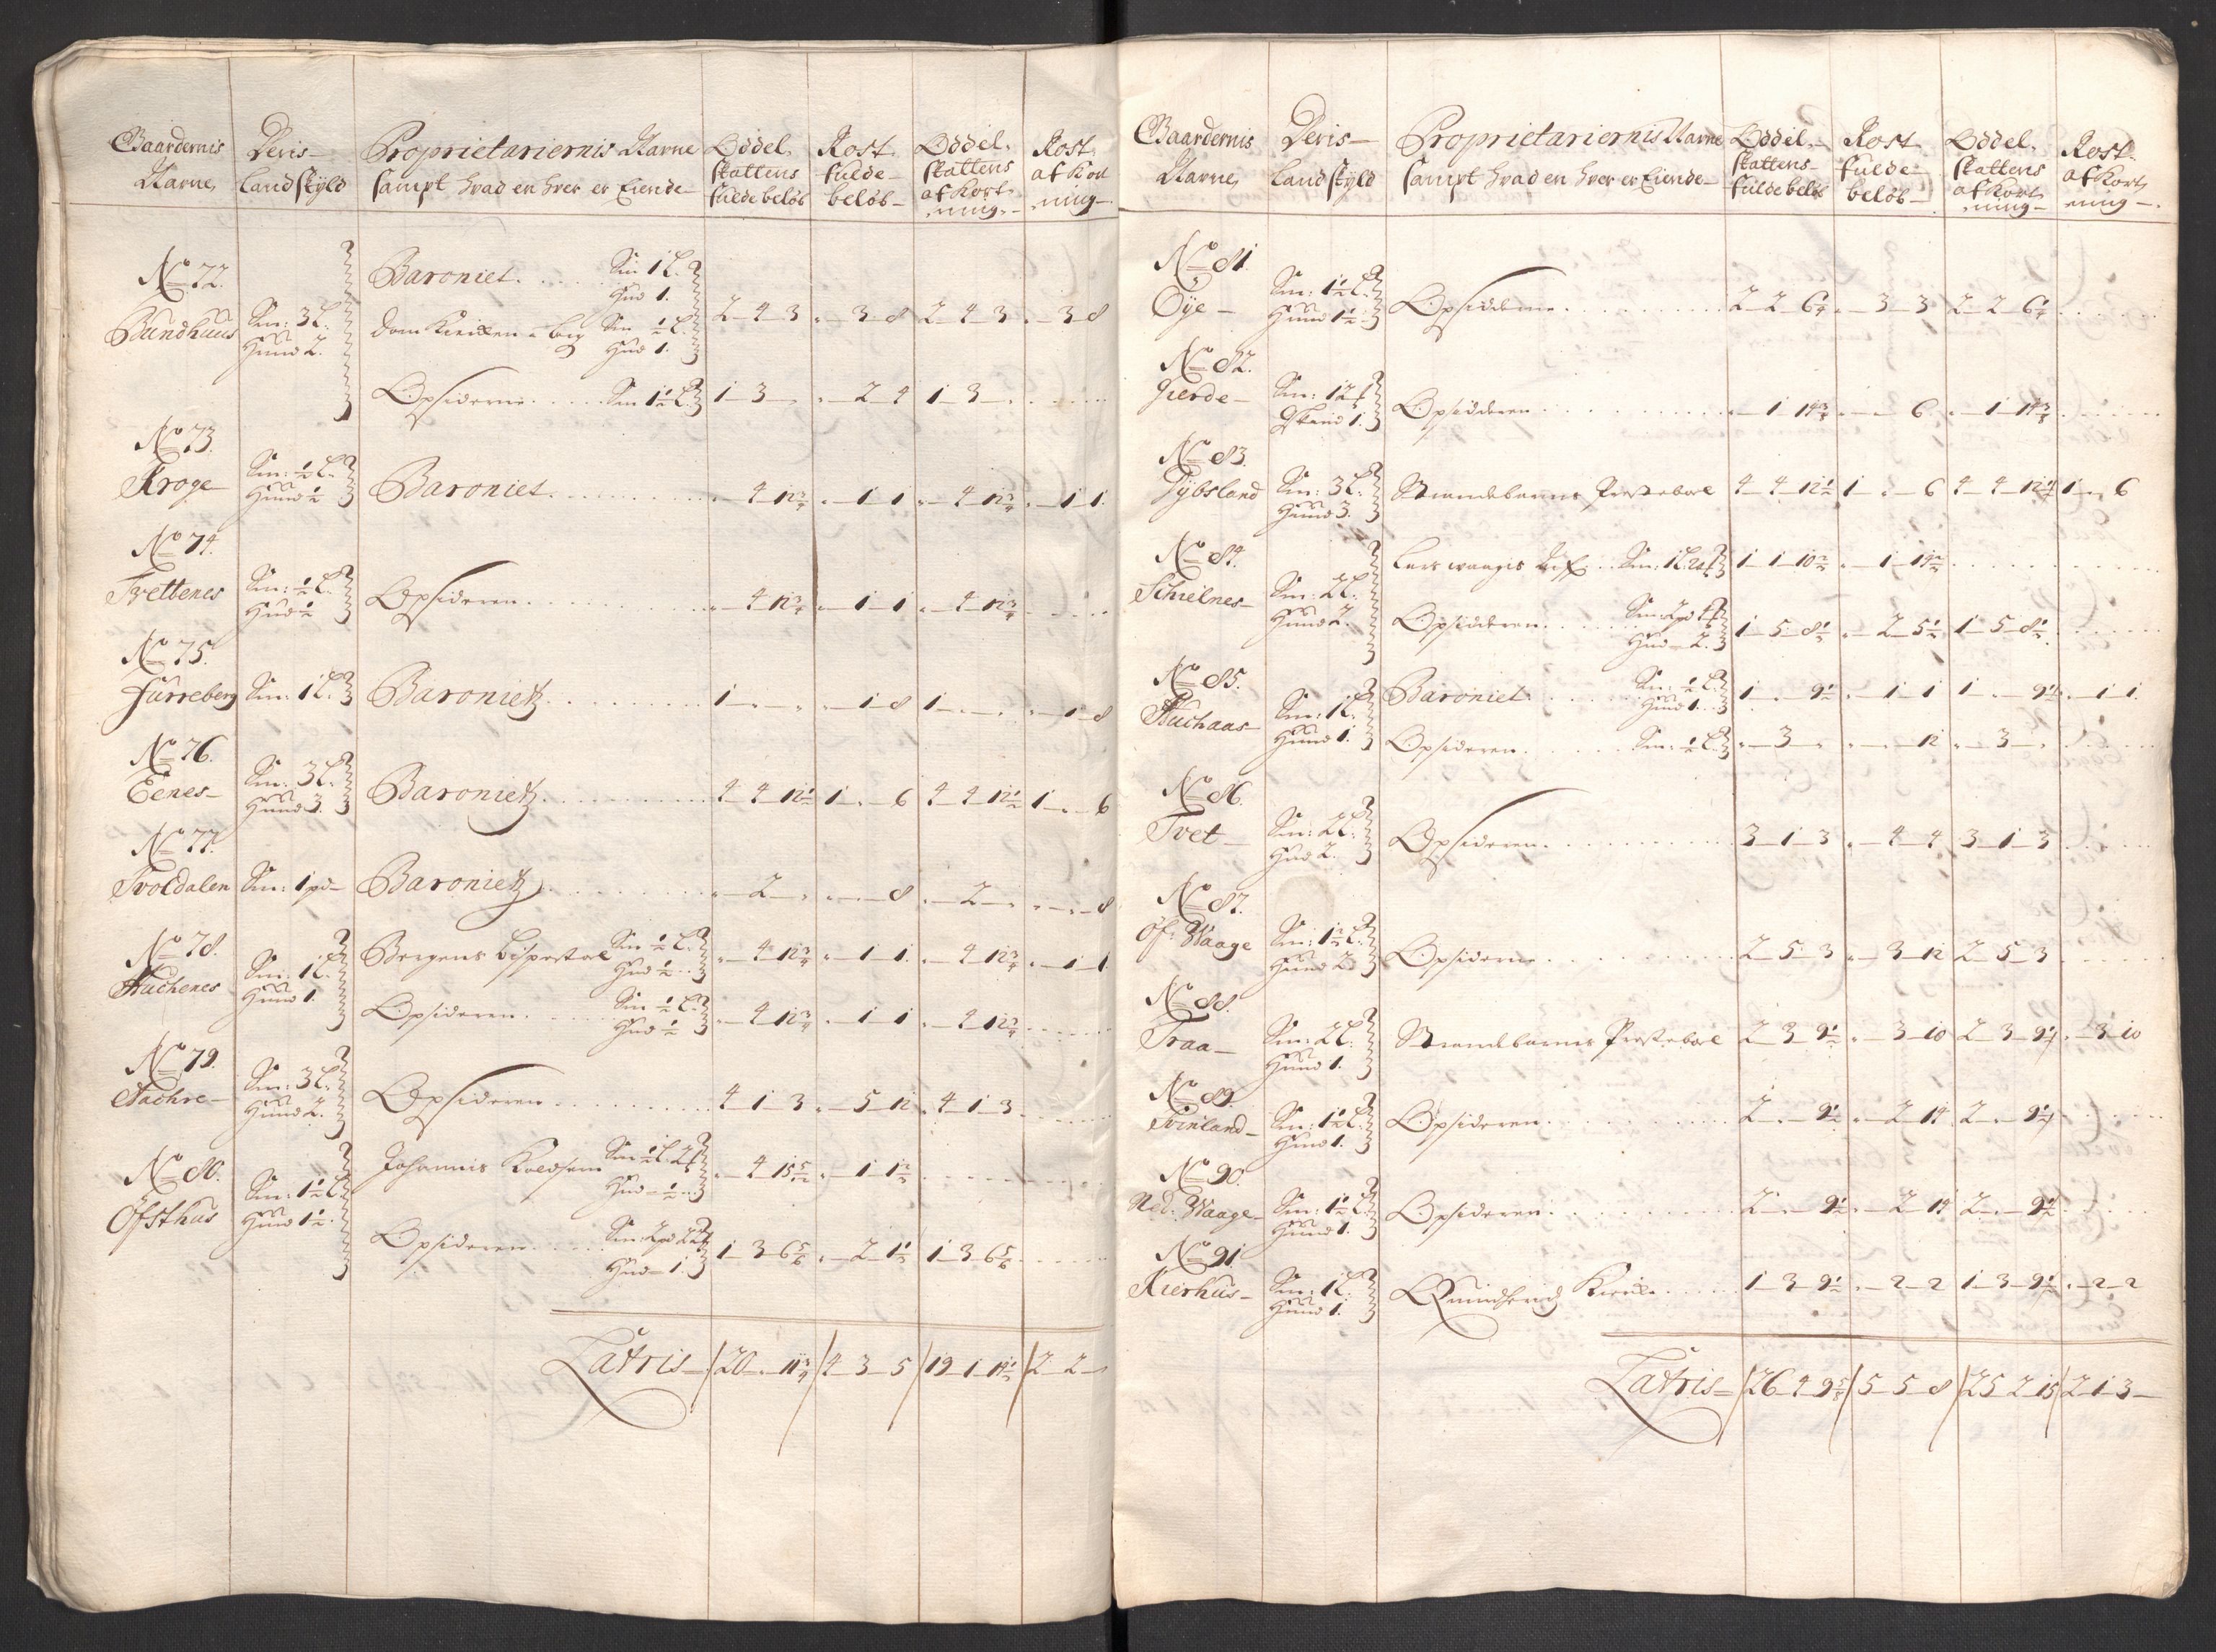 Gaardernis Nafne
Deris Landskyld
Proprietariernis Nafne sampt hvad en hver er Eiende
Oddel skattens fulde beløb
Rost fulde beløb
Oddel skattens afkortning
Rost afkortning
No 72. Bundhuus Sm: 3 L. Hund 2.
Baroniet Sm 1 L. Hud 1.
Domkircken i Berg Sm ½ L. Hud 1. 2-4-3 - 3-8 2-4-3 - 3-8
Opsiderne Sm 1½ L. 1-3- - 2-4 1-3-
No 73. Kroge Sm: ½ L. Hund ½ Baroniet - 4-12¾ - 1-1 - 4-12¾ - 1-1
No 74. Tvettenes Sm: ½ L. Hud ½ Opsideren - 4-12¾ - 1-1 - 4-12¾
No 75. Furreberg Sm: 1 L. Baroniet 1 - - - 1-8 1 - - - 1-8
No 76. Eenes Sm: 3 L. Hund 3. Baroniet 4-4-12½ 1 - 6 4-4-12½ 1 - 6
No 77. Tvoldalen Sm: 1 pd Baroniet - 2 - - - 8 - 2 - - - 8
No 78. Auchenes Sm: 1 L. Hund 1.
Bergens Bispestoel Sm ½ L. Hud ½ - 4-12¾ - 1-1 - 4-12¾ - 1-1
Opsideren Sm ½ L. Hud ½ - 4-12¾ - 1-1 - 4-12¾
No 79. Nachre Sm: 3 L. Hund 2. Opsideren 4-1-3 - 5-12 4-1-3
No 80. Ofsthus Sm: 1½ L. Hund 1½.
Johannis Koldsen Hud ½ - 4-15 - 1-1½
Opsideren Hud 1. 1-3-6⅚ - 2-1½ 1-3-6⅚
Latris 20 - 11¾ 4-3-5 19-1-14½ 2-2-
Gaardernis Nafne
Deris Landskyld
Proprietariernis Nafne sampt hvad en hver er Eiende
Oddel skattens fulde beløb
Rost fulde beløb
Oddel skattens afkortning
Rost afkortning
No 81. Øye Sm: 1½ L. Hund 1½ Opsidderne 2-2-6¼ - 3-3 2-2-6¼
No 82. Gierde Opsidderen - 1-14 - - 6 - 1-14
No 83. Tybsland Sm: 3 L. Hund 3. Strandebarms Presteboel 4-4-12½ 1 - 6 4-4-12½ 1 - 6
No 84. Schielnes Sm: 2 L. Hund 2.
Lars 1-1-10 - 1-14
Opsidderen Hud 2. 1-5-8½ - 2-5½ 1-5-8½
No 85. Auchaas Sm: 1 L. Hund 1.
Baroniet Sm: ½ L. Hund 1. 1 - 9½ - 1-1 1 - 9½ - 1-1
Opsideren Sm: ½ L. - 3 - - - 12 - 3 -
No 86. Tvet Sm: 2 L. Hud 2. Opsideren 3-1-3 - 4-4 3-1-3
No 87. Of: Waage Sm: 1½ L. Hund 2 Opsiderne 2-5-3 - 3-12 2-5-3
No 88. Traa Sm: 2 L. Hund 1. Strandebarms Presteboel 2-3-9½ - 3-10 2-3-9½ - 3-10
No 89. Tvinland Sm: 1½ L. Hund 1. Opsideren 2 - 9½ - 2-14 2 - 9½
No 90. Ned: Waage Sm: 1½ L. Hund 1. Opsideren 2 - 9½ - 2-14 2 - 9½
No 91. Kierhus Sm: 1 L. Hund 1. Quindherrid Kircke 1-3-9½ - 2-2 1-3-9½ - 2-2
Latris 26-4-9⅝ 5-5-8 25-2-15 2-1-3